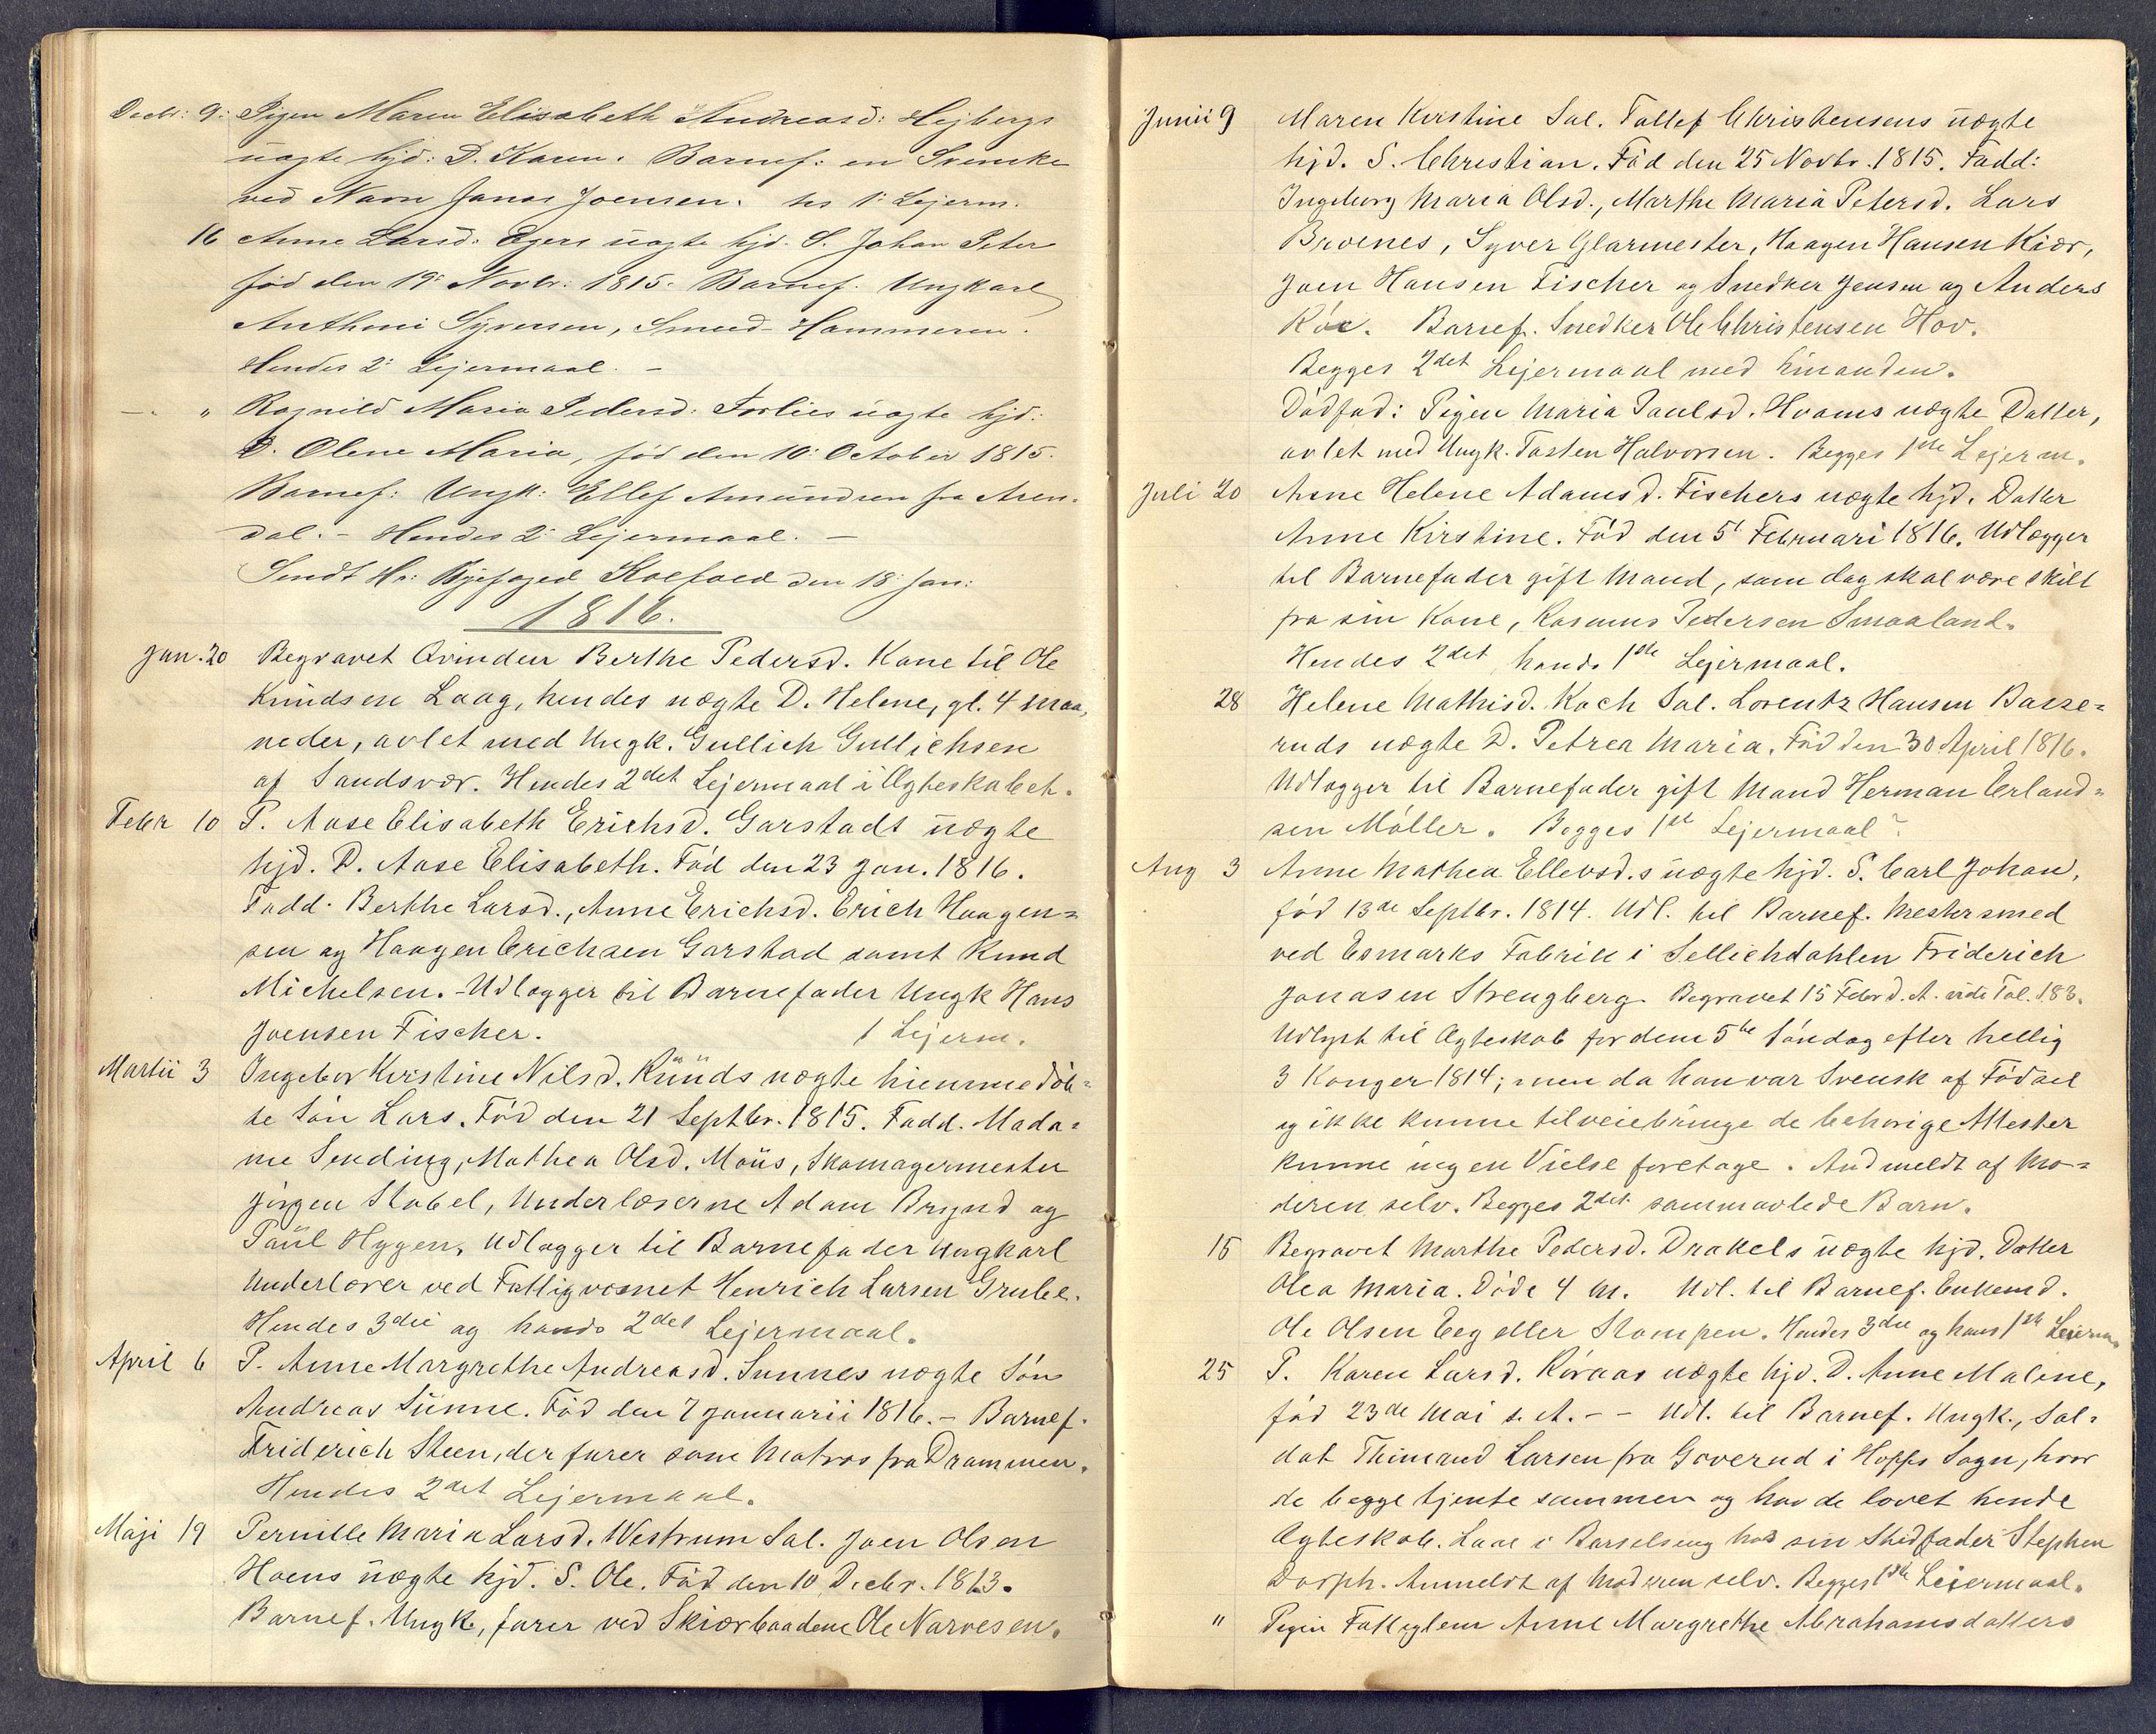 Decbr: 9. Pigen Maren Elisabeth Andreasd: Hejbergs
uægte hjd: D. Karen. Barnef: en Svenske
ved Navn Jonas Joensen. hs 1: Lejerm.
16 Anne Larsd: Egers uægte hjd. S. Johan Peter
fød den 19: Novbr: 1815. Barnef. Ungkarl
Anthoni Syversen, Smed-Hammeren.
Hendes 2: Lejermaal. –
— " Ragnild Maria Pedersd: Forlies uægte hjd:
D. Olene Maria, fød den 10: October 1815.
Barnef: Ungk: Ellef Amundsen fra Aren-
dal. – Hendes 2: Lejermaal. –
Sendt Hr: Byefoged Koefoed den 18: Jan:
1816.
Jan. 20 Begravet Qvinden Berthe Pedersd. Kone til Ole
Knudsen Laag, hendes uægte D. Helene, gl. 4 Maa,
neder, avlet med Ungk. Gullich Gullichsen
af Sandsvær. Hendes 2det Lejermaal i Ægteskabet.
Febr 10 P. Aase Elisabeth Erichsd. Garstads uægte
hjd. D. Aase Elisabeth. Fød den 23 Jan. 1816.
Fadd. Berthe Larsd., Anne Erichsd. Erich Haagen=
sen og Haagen Erichsen Garstad samt Knud
Michelsen. – Udlægger til Barnefader Ungk Hans
Joensen Fischer. 1 Lejerm.
Martii 3 Ingebor Kirstine Nilsd. Kruuds uægte hiemmedøb=
te Søn Lars. Fød den 21 Septbr. 1815. Fadd. Mada=
me Sending, Mathea Olsd. Moüs, Skomagermester
Jørgen Stabel, Underlæserne Adam Brynd og
Paül Hygen. Udlægger til Barnefader Ungkarl
Underlærer ved Fattigvæsnet Henrich Larsen Grube.
Hendes 3die og hands 2det Lejermaal.
April 6 P. Anne Margrethe Andreasd. Sunnes uægte Søn
Andreas Sünne. Fød den 7 Januarii 1816. – Barnef.
Friderich Steen, der farer som Matros fra Drammen.
Hendes 2det Lejermaal.
Maji 19 Pernille Maria Larsd. Westrum Sal. Joen Olsen
Hoens uægte hjd. S. Ole. Fød den 10 Decbr. 1813.
Barnef. Ungk, farer ved Skiærbaadene Ole Narvesen.
Junii 9 Maren Kirstine Sal. Tallef Christensens uægte
hjd. S. Christian. Fød den 25 Novbr. 1815. Fadd:
Ingeborg Maria Olsd., Marthe Maria Petersd. Lars
Broenes, Syver Glarmester, Haagen Hansen Kiær,
Joen Hansen Fischer og Snedker Jensen og Anders
Barnef. Snedker Ole Christensen Hov.
Begges 2det Lejermaal med hinanden.
Dødfød: Pigen Maria Paulsd. Hvams uægte Datter,
avlet med Ungk. Tosten Halvorsen. Begges 1ste Lejerm.
Juli 20 Anne Helene Adamsd. Fischers uægte hjd. Datter
Anne Kirstine. Fød den 5t Februari 1816. Udlægger
til Barnefader gift Mand, som dog skal være skilt
fra sin Kone, Rasmus Pedersen Smaaland.
Hendes 2det hands 1ste Lejermaal.
28 Helene Mathisd. Koch Sal. Lorentz Hansen Basse=
ruds uægte D. Petrea Maria. Fød den 30 April 1816.
Udlægger til Barnefader gift Mand Herman Erland=
sen Møller. Begges 1ste Lejermaal?
Aug 3 Anne Mathea Ellevsd.s uægte hjd. S. Carl Johan,
fød 13de Septbr. 1814. Udl. til Barnef. Mestersmed
ved Esmarks Fabrik i Sellichdahlen Friderich
Jonasen Strengberg. Begravet 15 Febr d. A. vide Fol. 183.
Udlyst til Ægteskab for dem 5te Søndag efter hellig
3 Konger 1814; men da han var Svensk af Fødsel
og ikke kunne tilveiebringe de behørige Attester
kunne ingen Vielse foretage. Andmeldt af Mo=
deren selv. Begges 2det sammavlede Barn.
15 Begravet Marthe Pedersd. Drakels uægte hjd. Datter
Olea Maria. Døde 4 M. Udl. til Barnef. Enkemd.
Ole Olsen Eeg eller Stompen. Hendes 3die og hans 1ste Leierm.
25 P. Karen Larsd. Røraas uægte hjd. D. Anne Malene,
fød 23de Mai s. A. – – Udl. til Barnef. Ungk., Sol=
dat Thimand Larsen fra Goverud i Hoffs Sogn, hvor
de begge tjente sammen og havde lovet hende
Ægteskab. Laae i Barselseng hos sin Stedfader Stephen
Dorph. Anmeldt af Moderen selv. Begges 1ste Leiermaal.
" Pigen Fattiglem Anne Margrethe Abrahamsdatters